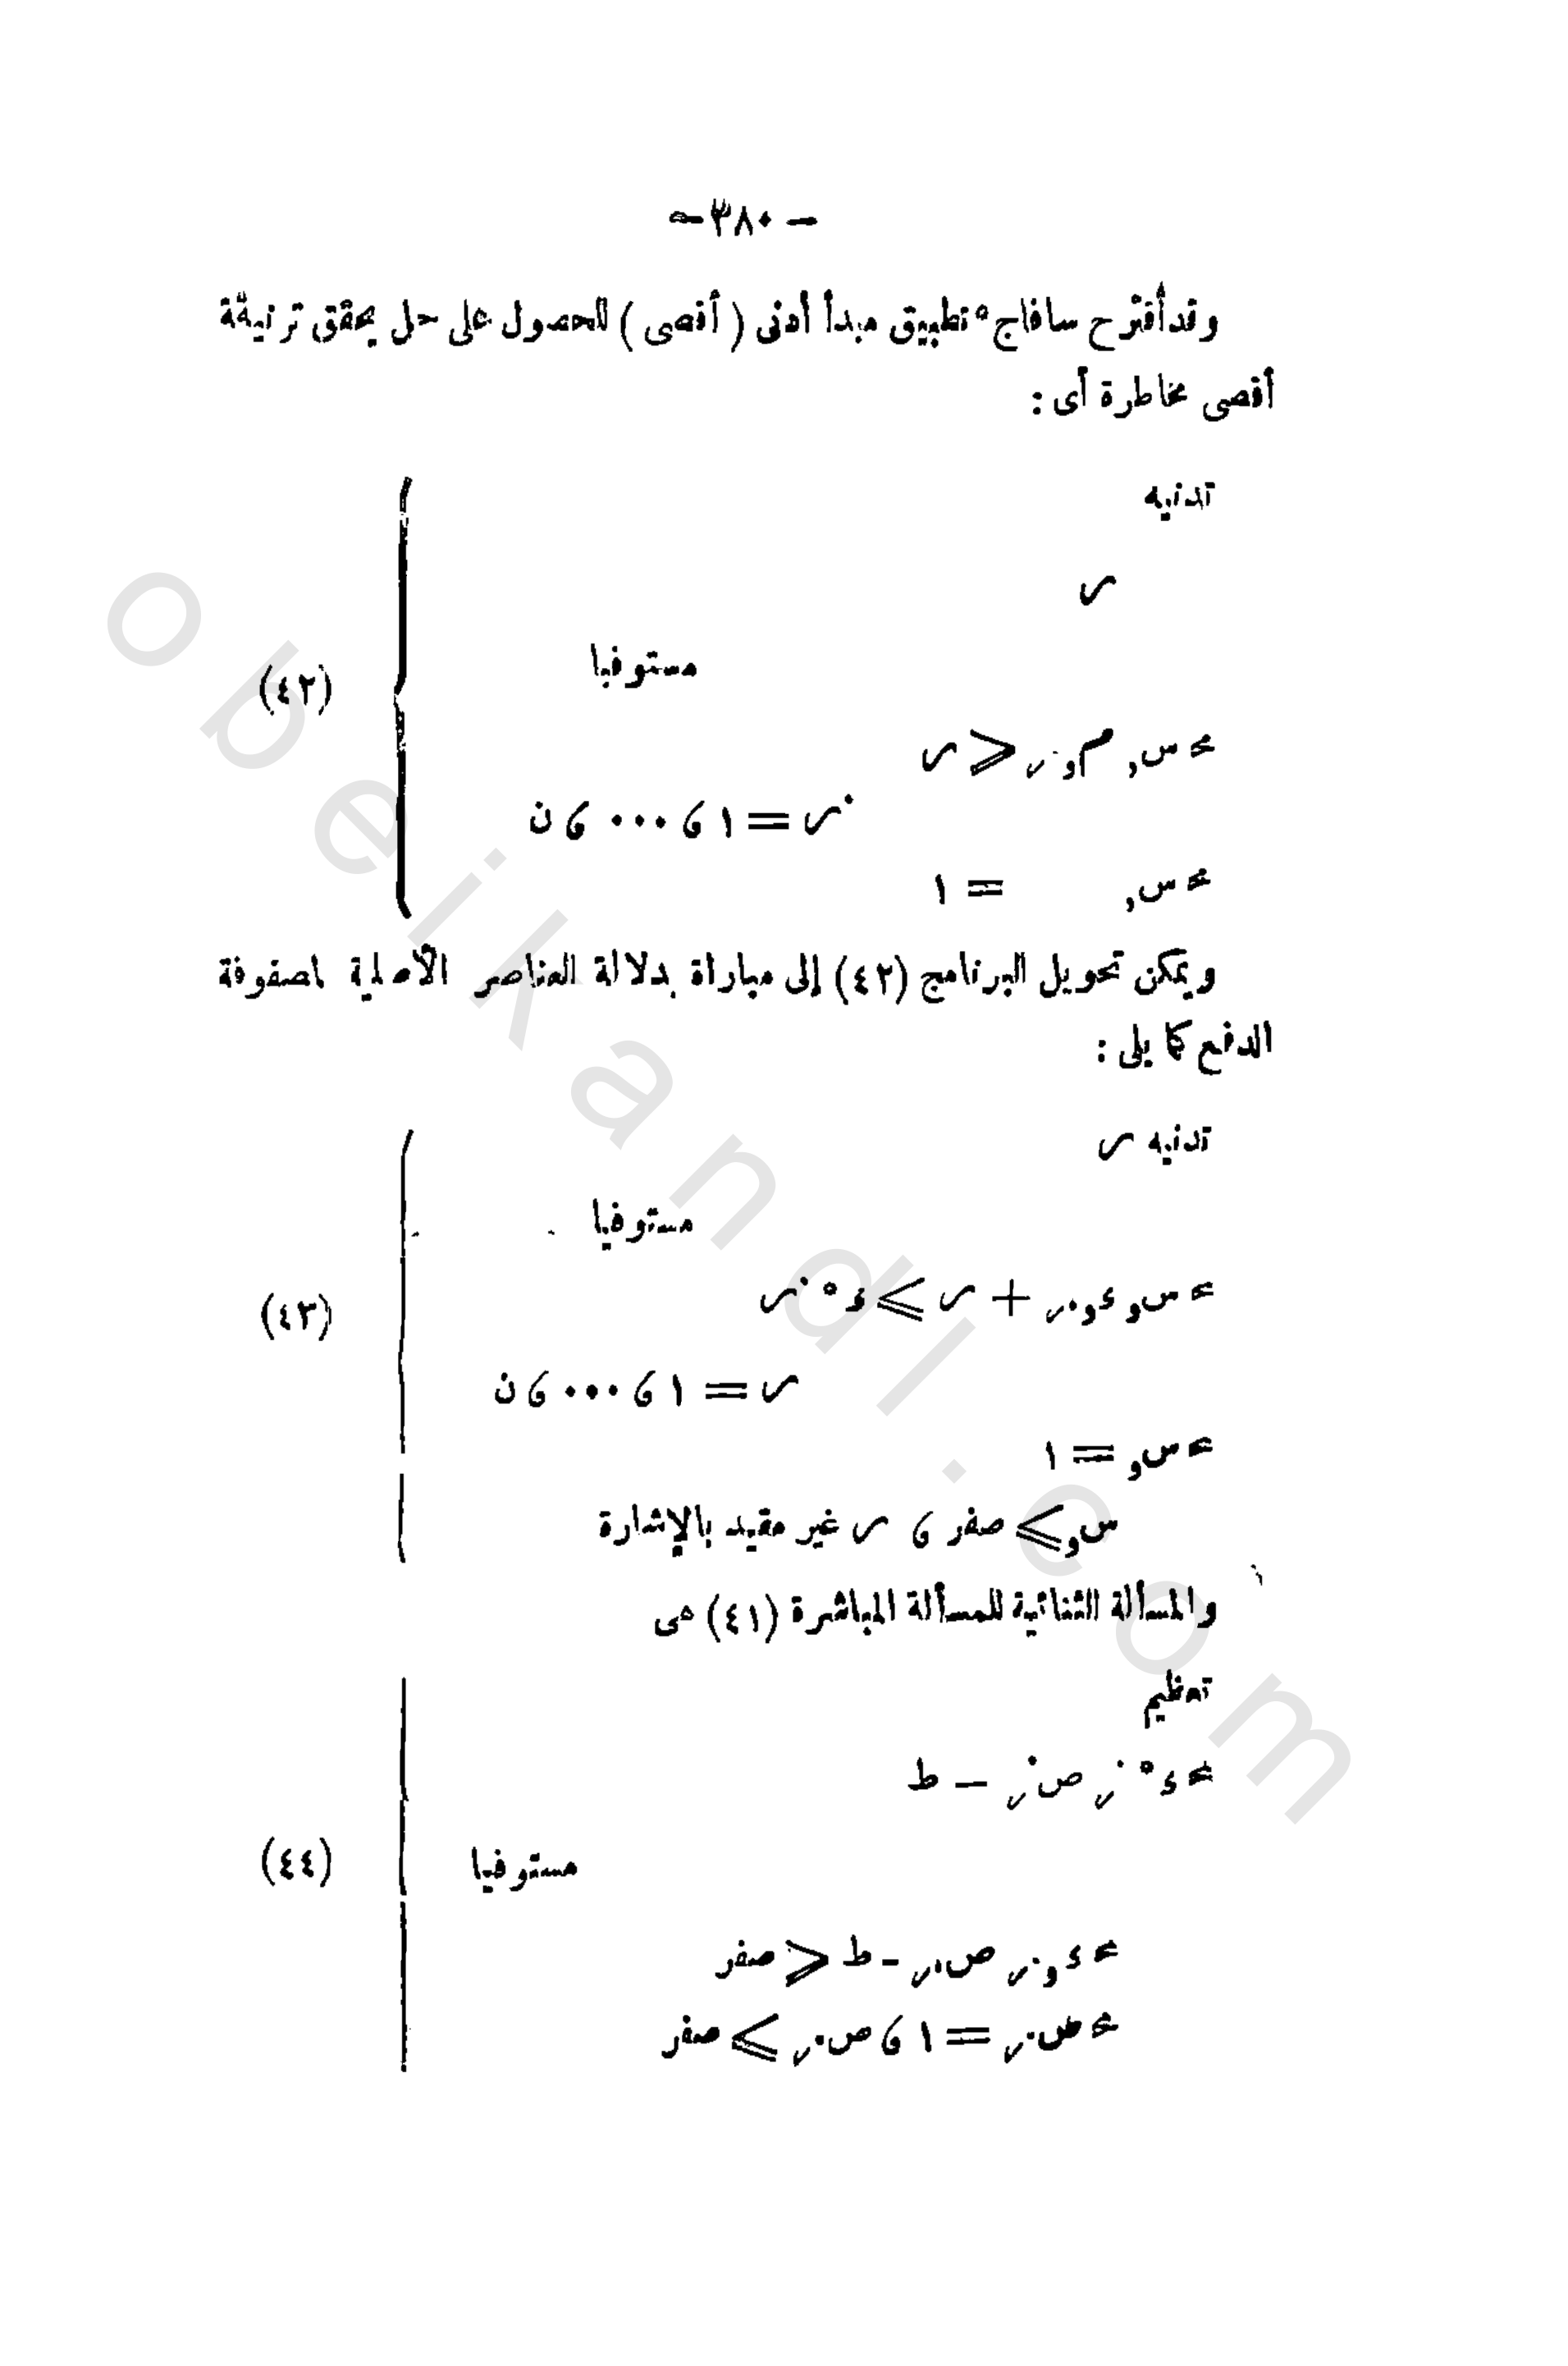 — ٣٨٠ —
وقد أقترح سافاج° تطبيق مبدأ أدنى ( أقصى ) للحصول على حل يحقق تدنية
أقصى مخاطرة أى :
تدنيه
ر
مستوفيا
(٤٢)
مج س و م و ر ≤ ر
ر = ١ ، ... ، ن
مج س و = ١
ويمكن تحويل البرنامج (٤٢) إلى مباراة بدلالة العناصر الأصلية لمصفوفة
الدفع كما يلى :
تدنيه ر
مستوفيا
مج س و ء و ر + ر ≥ ء° ر
(٤٣)
ر = ١ ، ... ، ن
مج س و = ١
س و ≥ صفر ، ر غير مقيد بالإشارة
والمسألة الثنائية للمسألة المباشرة (٤١) هى
تعظيم
مج ء° ر ص ر — ط
مستوفيا
(٤٤)
مج ء و ر ص ر - ط ≤ صفر
مج ص ر = ١ ، ص ر ≥ صفر
obeikandl.com